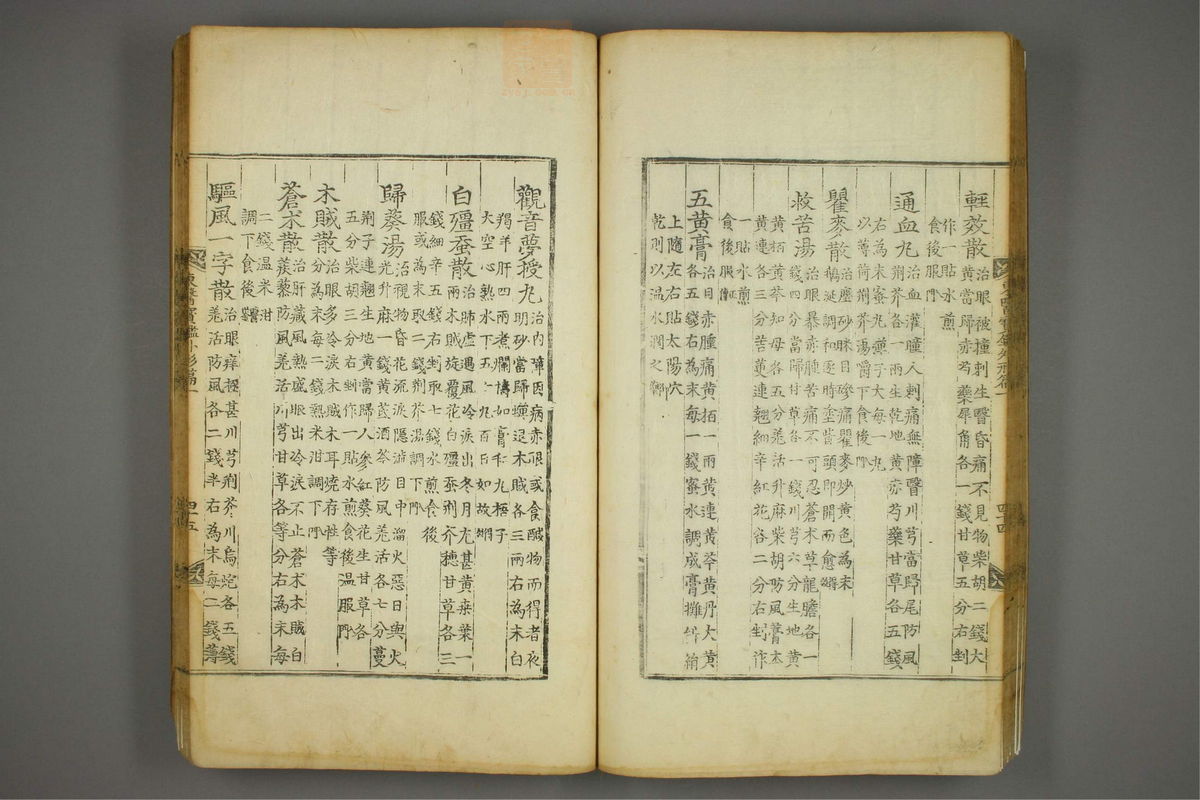 輕效散 治眼被撞刺生瞖昏痛不見物柴胡二錢大
黃當歸赤芍藥犀角各一錢甘草五分右剉
作一貼水煎
食後服門
通血丸 治血灌瞳人刺痛無障瞖川芎當歸尾防風
荊芥各一兩生乾地黃赤芍藥甘草各五錢
右為末蜜丸彈子大每一丸
以薄荷荊芥湯嚼下食後門
瞿麥散 治塵砂眯目磣痛瞿麥炒黃色為末
鵝涎調和逐時塗眥頭即開而愈
救苦湯 治眼暴赤腫苦痛不可忍蒼朮草龍膽各一
錢四分當歸甘草各一錢川芎六分生地黃
黃栢黃芩知母各五分羌活升麻柴胡防風藁本
黃連各三分苦蕒連翹細辛紅花各二分右剉作
一貼水煎
食後服
五黃膏 治目赤腫痛黃栢一兩黃連黃芩黃丹大黃
各五錢右為末每一錢蜜水調成膏攤緋絹
上隨左右貼太陽穴
乾則以溫水潤之
四四
觀音夢授丸 治內障因病赤眼或食醎物而得者夜
明砂當歸蟬退木賊各三兩右為末白
羯羊肝四兩煮爛擣如膏和丸梧子
大空心熱水下五十丸百日如故
白殭蚕散 治肺虛遇風冷淚出冬月尤甚黃桑葉一
兩木賊旋覆花白殭蚕荊芥穗甘草各三
錢細辛五錢右剉取七錢水煎食後
服或為末取二錢荊芥湯調下門
歸葵湯 治視物昏花流淚隱澁日中溜火惡日與火
光升麻一錢黃芪酒芩防風羌活各七分蔓
荊子連翹生地黃當歸人參紅葵花生甘草各
五分柴胡三分右剉作一貼水煎食後溫服門
木賊散 治眼多冷淚木賊木耳燒存性等
分為末每二錢熱米泔調下門
蒼朮散 治肝藏風熱盛眼出冷淚不止蒼朮木賊白
蒺藜防風羌活川芎甘草各等分右為末每
二錢溫米泔
調下食後
驅風一字散 治眼痒極甚川芎荊芥川烏炮各五錢
羌活防風各二錢半右為末每二錢薄
東醫寶鑑外形篇一
四五